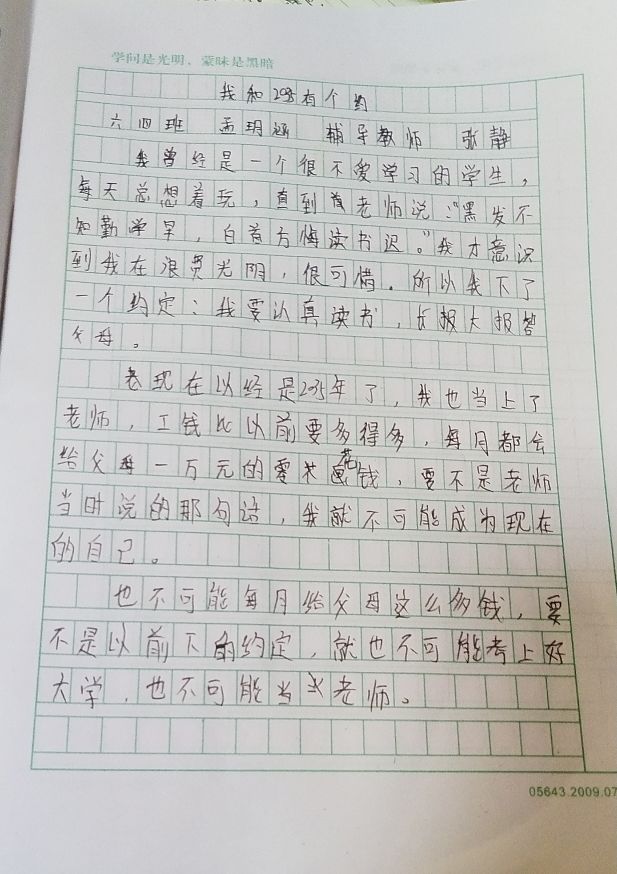 学问是光明，蒙昧是黑暗
我和2035有个约
六四班 孟玥涵 辅导教师 张静
我曾经是一个很不爱学习的学生，
每天总想着玩，直到老师说："黑发不
知勤学早，白首方悔读书迟。"我才意识
到我在浪费光阴，很可惜。所以我下了
一个约定：我要认真读书，长报大报答
父母。
现在以经是2035年了，我也当上了
老师，工钱比以前要多得多，每月都会
给父母一万元的零花钱，要不是老师
当时说的那句话，我就不可能成为现在
的自己。
也不可能每月给父母这么多钱，要
不是以前下的约定，就也不可能考上好
大学，也不可能当老师。
05643.2009.07